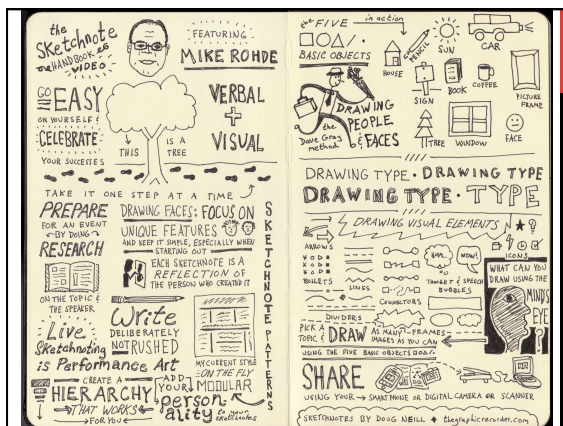 the
SKetchnote
the HANDBOOK
VIDEO
FEATURING
MIKE ROHDE
GO EASY
ON YOURSELF &
CELEBRATE
YOUR SUCCESSES
THIS IS A TREE
VERBAL
+
VISUAL
TAKE IT ONE STEP AT A TIME
PREPARE
FOR AN EVENT
BY DOING
RESEARCH
ON THE TOPIC &
THE SPEAKER
DRAWING FACES: FOCUS ON
UNIQUE FEATURES
AND KEEP IT SIMPLE, ESPECIALLY WHEN
STARTING OUT
EACH SKETCHNOTE IS A
REFLECTION OF
THE PERSON WHO CREATED IT
SKETCHNOTE PATTERNS
Write
DELIBERATELY
NOT RUSHED
Live
Sketchnoting
is Performance Art
MY CURRENT STYLE
ON THE FLY
MODULAR
CREATE A
HIERARCHY
THAT WORKS
FOR YOU
ADD YOUR
person-
ality to your
sketchnotes
the FIVE
BASIC OBJECTS
in action
HOUSE
PENCIL
SUN
CAR
SIGN
BOOK
COFFEE
PICTURE
FRAME
TREE
WINDOW
FACE
DRAWING
PEOPLE
& FACES
the
Dave Gray
method
DRAWING TYPE • DRAWING TYPE
DRAWING TYPE • TYPE
DRAWING VISUAL ELEMENTS
ARROWS
BULLETS
LINES
CONNECTORS
DIVIDERS
HMM...
WOW!
THOUGHT & SPEECH
BUBBLES
FRAMES
ICONS
WHAT CAN YOU
DRAW USING THE
MIND'S
EYE
?
PICK A
TOPIC &
DRAW AS MANY
IMAGES AS YOU CAN
USING THE FIVE BASIC OBJECTS
SHARE
USING YOUR → SMARTPHONE OR DIGITAL CAMERA OR SCANNER
SKETCHNOTES BY DOUG NEILL ◆ thegraphicrecorder.com